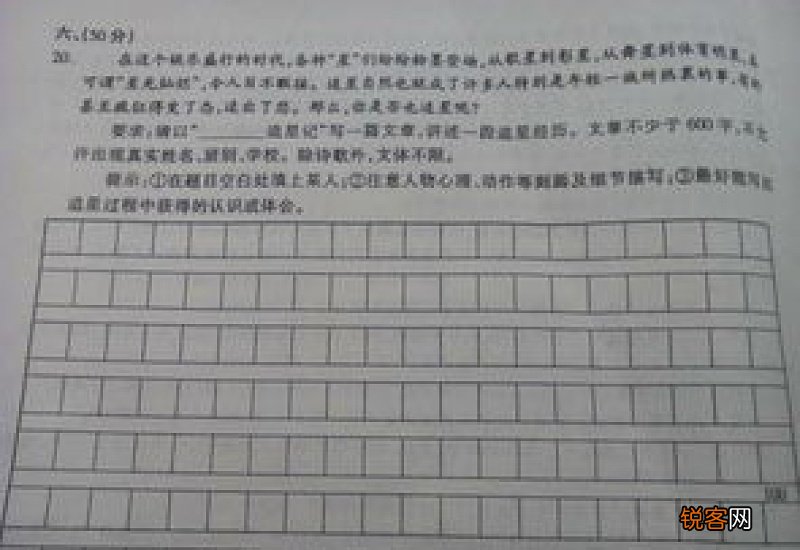 六、(50分)
20. 在这个娱乐盛行的时代,各种“星”们纷纷粉墨登场,从歌星到影星,从舞星到体育明星,
可谓“星光灿烂”,令人目不暇接。追星自然也就成了许多人特别是年轻一族
甚至疯狂得变了态,追出了悲。那么,你是否也追星呢?
要求:请以“________追星记”写一篇文章,讲述一段追星经历。文章不少于600字,不允
许出现真实姓名,班别,学校。除诗歌外,文体不限。
提示:①在题目空白处填上某人;②注意人物心理,动作等刻画及细节描写;③最好能写出
追星过程中获得的认识或体会。
100
锐客网